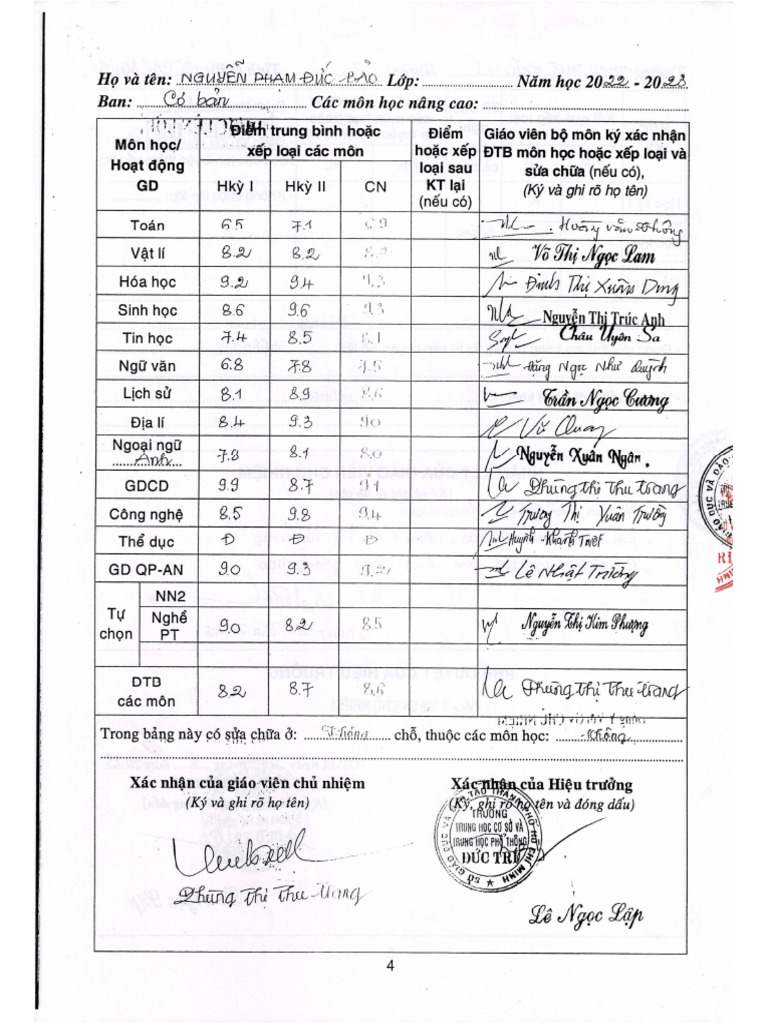 Họ và tên: NGUYỄN PHẠM ĐỨC BẢO Lớp: Năm học 2022 - 2023
Ban: Cơ bản Các môn học nâng cao:
Môn học/ Hoạt động GD Điểm trung bình hoặc xếp loại các môn Điểm hoặc xếp loại sau KT lại (nếu có) Giáo viên bộ môn ký xác nhận ĐTB môn học hoặc xếp loại và sửa chữa (nếu có), (Ký và ghi rõ họ tên)
Hkỳ I Hkỳ II CN
Toán 6.5 7.1 6.9
Vật lí 8.2 8.2 8.2 Võ Thị Ngọc Lam
Hóa học 9.2 9.4 9.3 Đinh Thị Xuân Dung
Sinh học 8.6 9.6 9.3 Nguyễn Thị Trúc Anh
Tin học 7.4 8.5 8.1 Châu Uyên Sa
Ngữ văn 6.8 7.8 7.5 Đặng Ngọc Như Quỳnh
Lịch sử 8.1 8.9 8.6 Trần Ngọc Cương
Địa lí 8.4 9.3 9.0 Vũ Quang
Ngoại ngữ Anh 7.8 8.1 8.0 Nguyễn Xuân Ngân.
GDCD 9.9 8.7 9.1 Phùng Thị Thu Trang
Công nghệ 8.5 9.8 9.4 Trương Thị Xuân Trường
Thể dục Đ Đ Đ Huỳnh Khánh Triết
GD QP-AN 9.0 9.3 9.2 Lê Nhật Trường
Tự chọn
NN2
Nghề PT 9.0 8.2 8.5 Nguyễn Thị Kim Phượng
ĐTB các môn 8.2 8.7 8.6 Phùng Thị Thu Trang
Trong bảng này có sửa chữa ở: Không chỗ, thuộc các môn học: Không
Xác nhận của giáo viên chủ nhiệm
(Ký và ghi rõ họ tên)
Phùng Thị Thu Trang
Xác nhận của Hiệu trưởng
(Ký, ghi rõ họ tên và đóng dấu)
SỞ GIÁO DỤC VÀ ĐÀO TẠO THÀNH PHỐ HỒ CHÍ MINH
TRƯỜNG
TRUNG HỌC CƠ SỞ VÀ
TRUNG HỌC PHỔ THÔNG
ĐỨC TRÍ
Lê Ngọc Lập
4